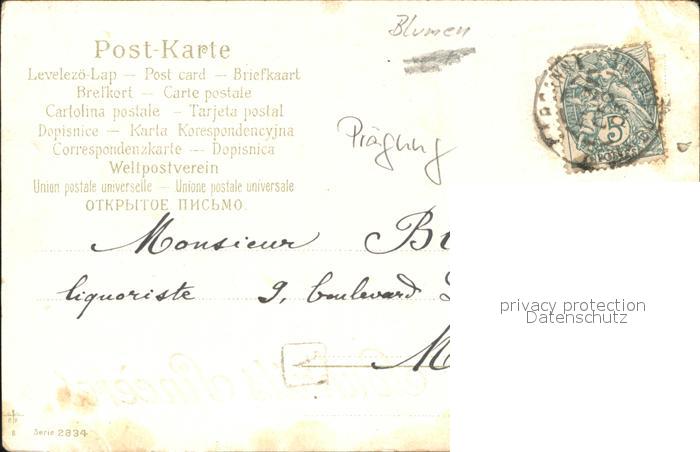 Blumen
Post-Karte
Levelező-Lap — Post card — Briefkaart
Brefkort — Carte postale
Cartolina postale — Tarjeta postal
Dopisnice — Karta Korespondencyjna
Correspondenzkarte — Dopisnica
Weltpostverein
Union postale universelle — Unione postale universale
ОТКРЫТОЕ ПИСЬМО.
Prägung
5
Monsieur B
liquoriste 9, boulevard
M
privacy protection
Datenschutz
Serie 2834